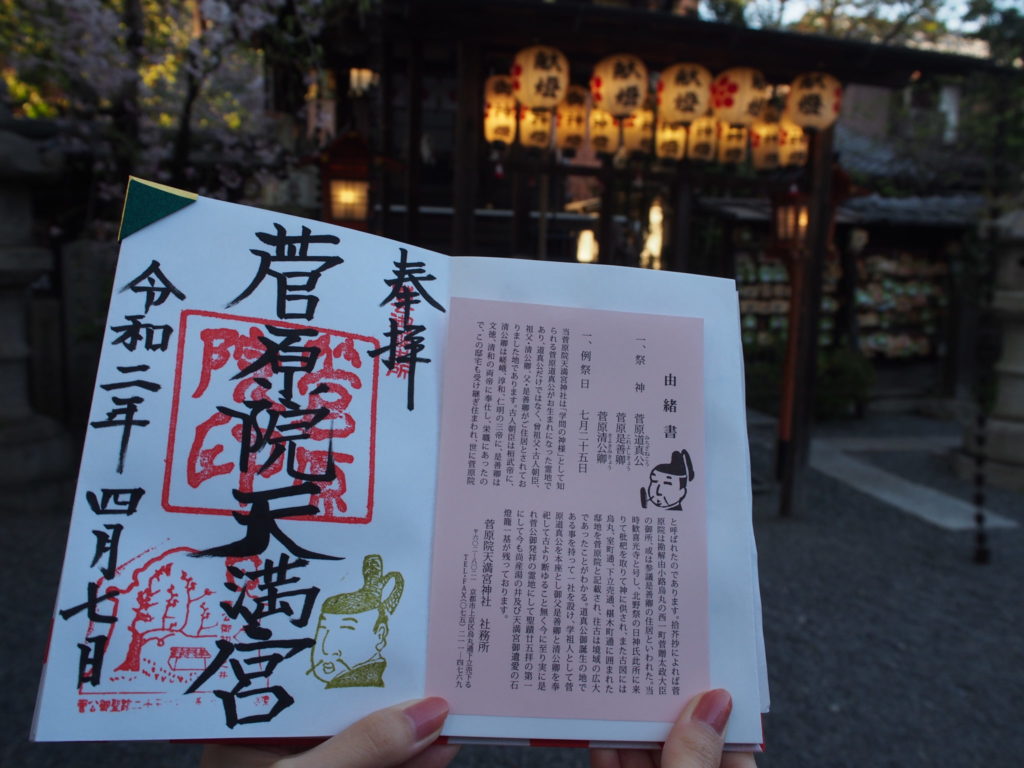 献燈
献燈
献燈
献燈
奉拝
菅原院天満宮
令和二年 四月七日
由緒書
一、祭神 菅原道真公
菅原是善卿
菅原清公卿
一、例祭日 七月二十五日
当菅原院天満宮神社は「学問の神様」として知
られる菅原道真公がお生まれになった霊地で
あり、道真公だけではなく、曾祖父・古人朝臣、
祖父・清公卿、父・是善卿がご住居とされてお
りました地であります。古人朝臣は桓武帝に、
清公卿は嵯峨、淳和、仁明の三帝に、是善卿は
文徳、清和の両帝に奉仕し、栄職にあったの
で、この邸宅も受け継ぎ住まわれ、世に菅原院
と呼ばれたのであります。拾芥抄によれば菅
原院は勘解由小路烏丸の西一町菅贈太政大臣
の御所、或は参議是善卿の住居といわれた。当
時歓喜光寺と号し、北野祭の日神氏此所に来
りて枇杷を取りて神に供され、また古図には
烏丸、室町通、下立売通、椹木町通に囲まれた
邸地を菅原院と記載され、往古は境域の広大
であったことがわかる。道真公御誕生の地で
ある事を持って一社を設け、学祖人として菅
原道真公を本座とし御父是善卿と清公卿を奉
祀して古より断ゆること無く今に至り実に是
れ菅公御発祥の霊地にして聖蹟廿五拝の第一
にして今も尚産湯の井及び天満宮御遺愛の石
燈籠一基が残っております。
菅原院天満宮神社 社務所
〒六〇二-八〇二一 京都市上京区烏丸通下立売下る
TEL・FAX(〇七五)二一一-四七六九